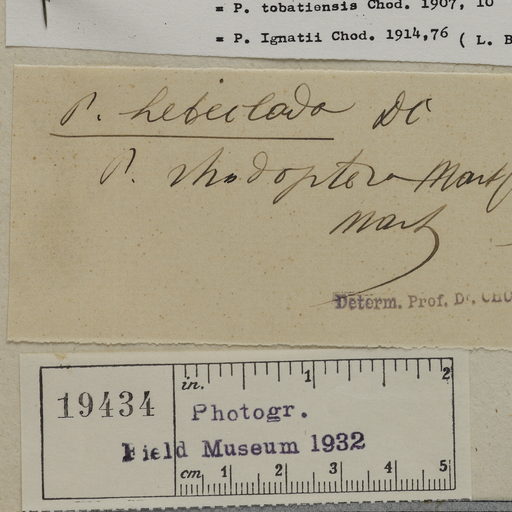 = P. tobatiensis Chod. 1907, 10
= P. Ignatii Chod. 1914,76 ( L. B
P. hebeclada DC
P. rhodoptera Mart
Mart
Determ. Prof. Dr. CHO
19434
in. 1 2
Photogr.
Field Museum 1932
cm 1 2 3 4 5